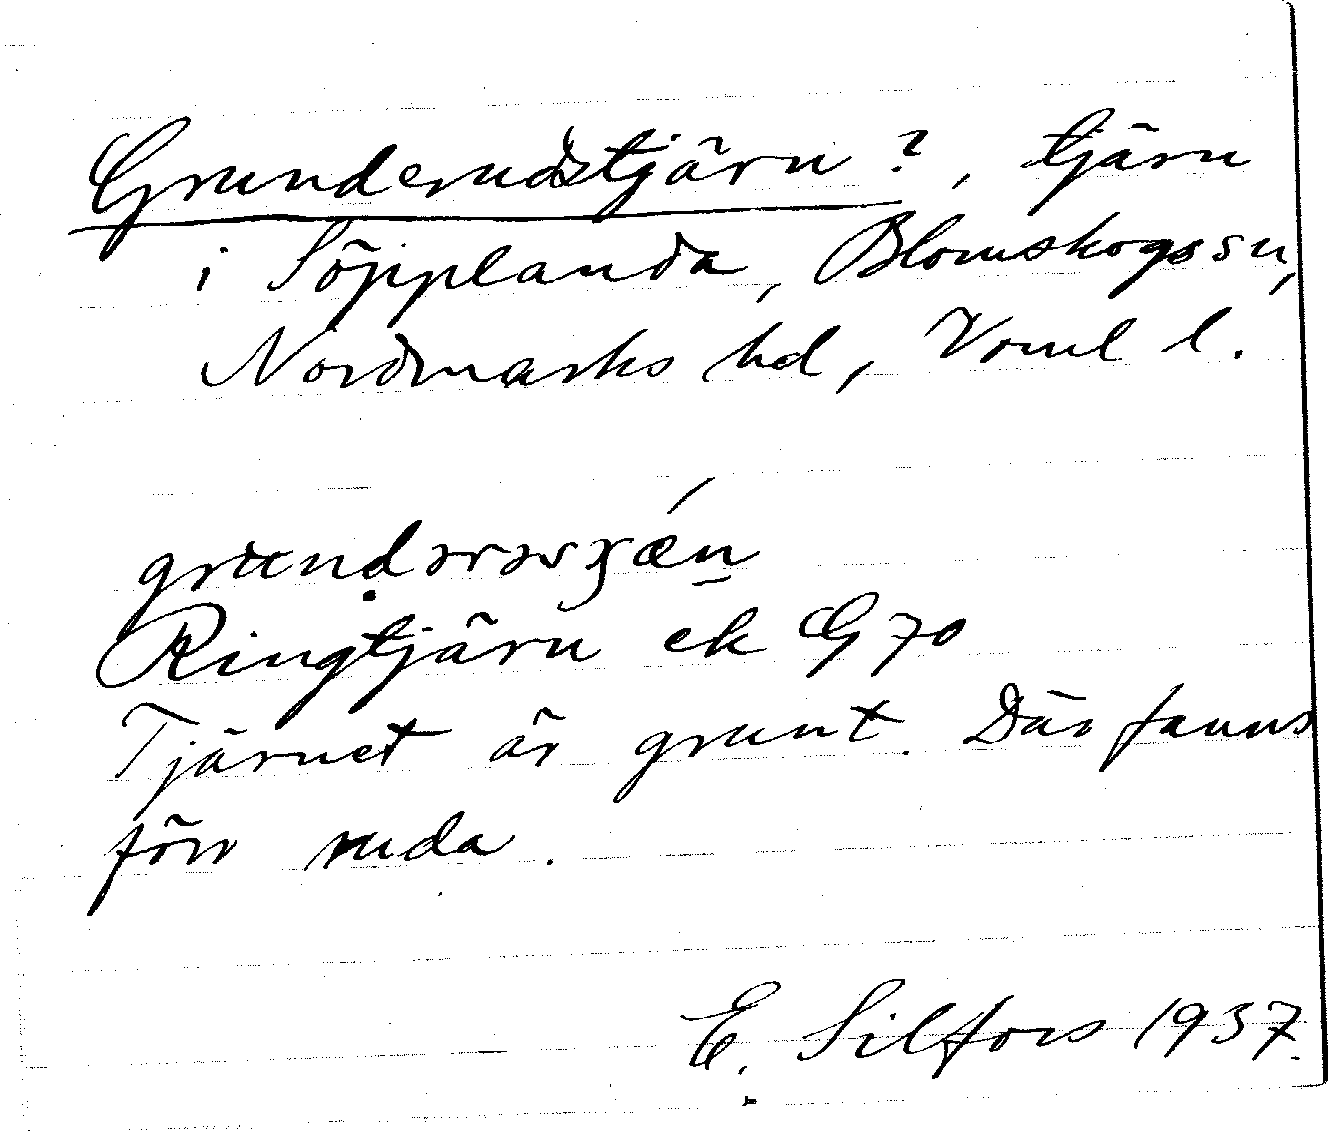 Grunderudstjärn?, tjärn
i Söpplanda, Blomskogs sn,
Nordmarks hd, Vrml l.
Ringtjärn ek G 70
Tjärnet är grunt. Där fanns
förr ruda.
E. Silfors 1937.